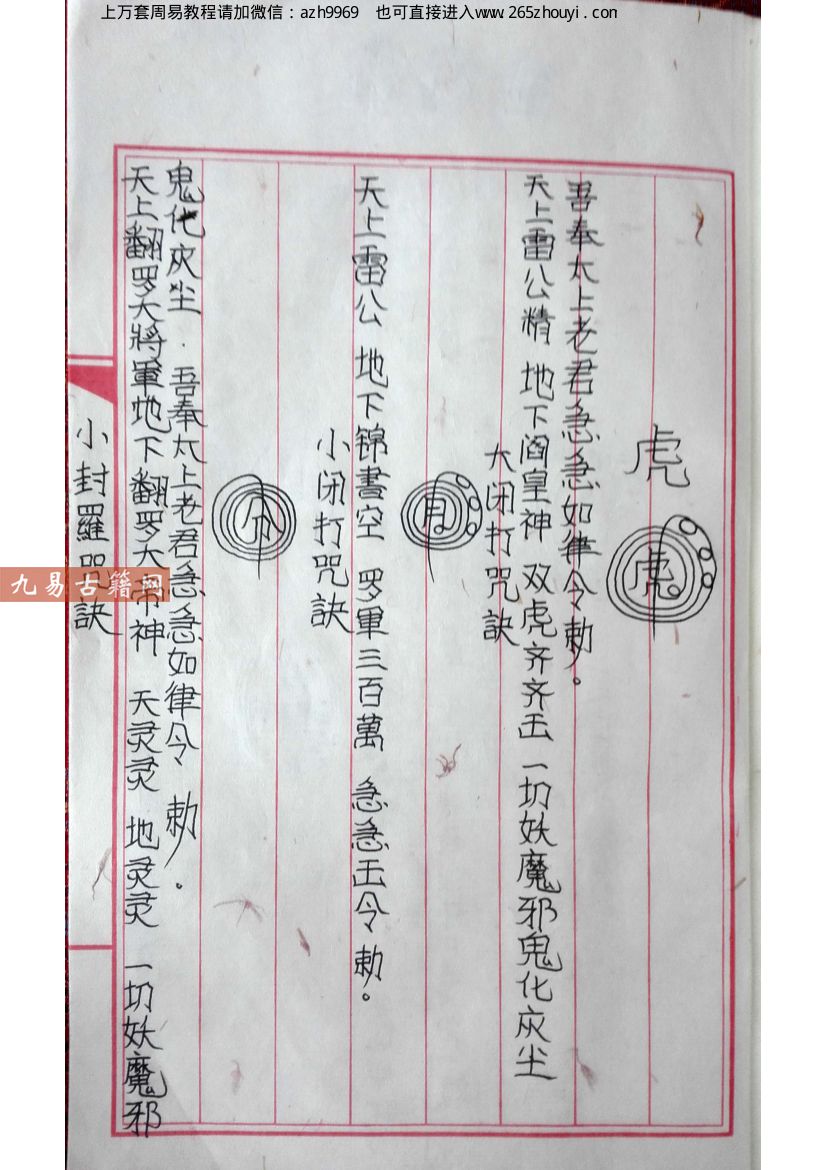 上万套周易教程请加微信：azh9969 也可直接进入www.265zhouyi.com
小封羅咒訣
天上翻罗大將軍地下翻罗大帝神 天灵灵 地灵灵 一切妖魔邪
鬼化灰尘．吾奉太上老君急急如律令 勅。
令
小闭打咒訣
天上雷公 地下锦書空 罗軍三百萬 急急玉令勅。
大闭打咒訣
天上雷公精 地下阎皇神 双虎齐齐 一切妖魔邪鬼化灰尘
吾奉太上老君急急如律令勅。
虎
虎
九易古籍网